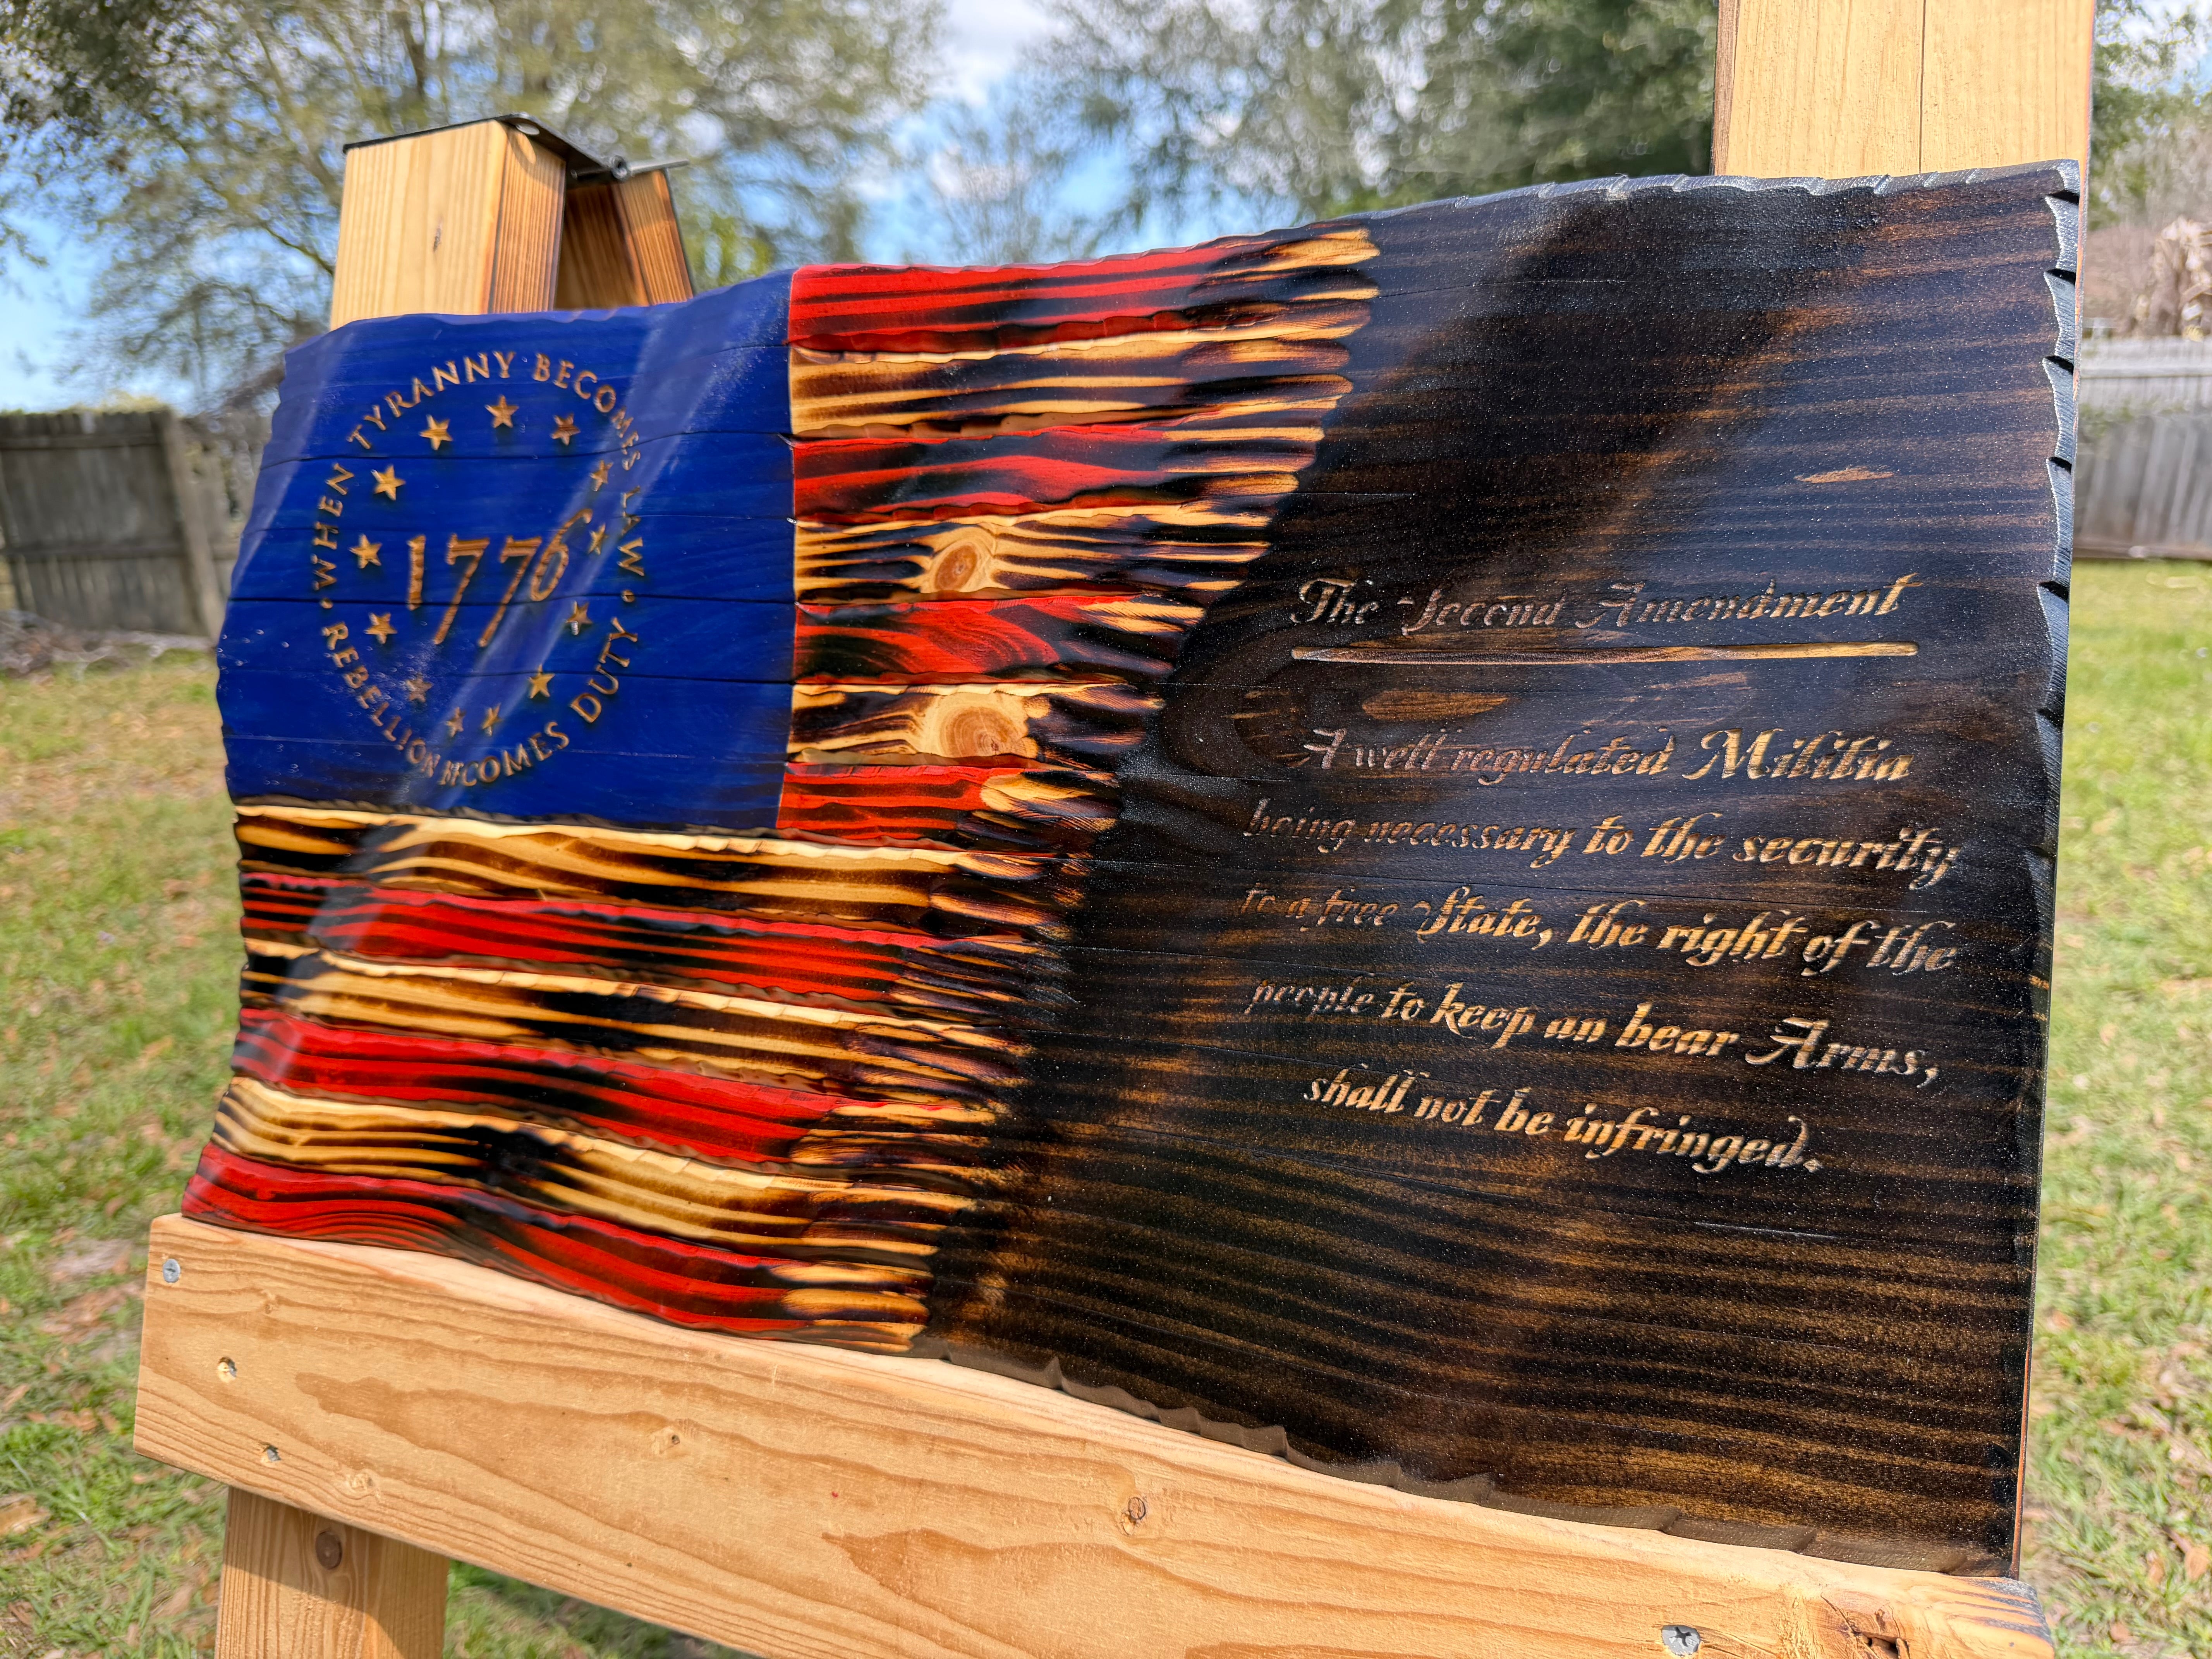 WHEN TYRANNY BECOMES LAW
1776
REBELLION BECOMES DUTY
The Second Amendment
A well regulated Militia
being necessary to the security
to a free State, the right of the
people to keep an bear Arms,
shall not be infringed.